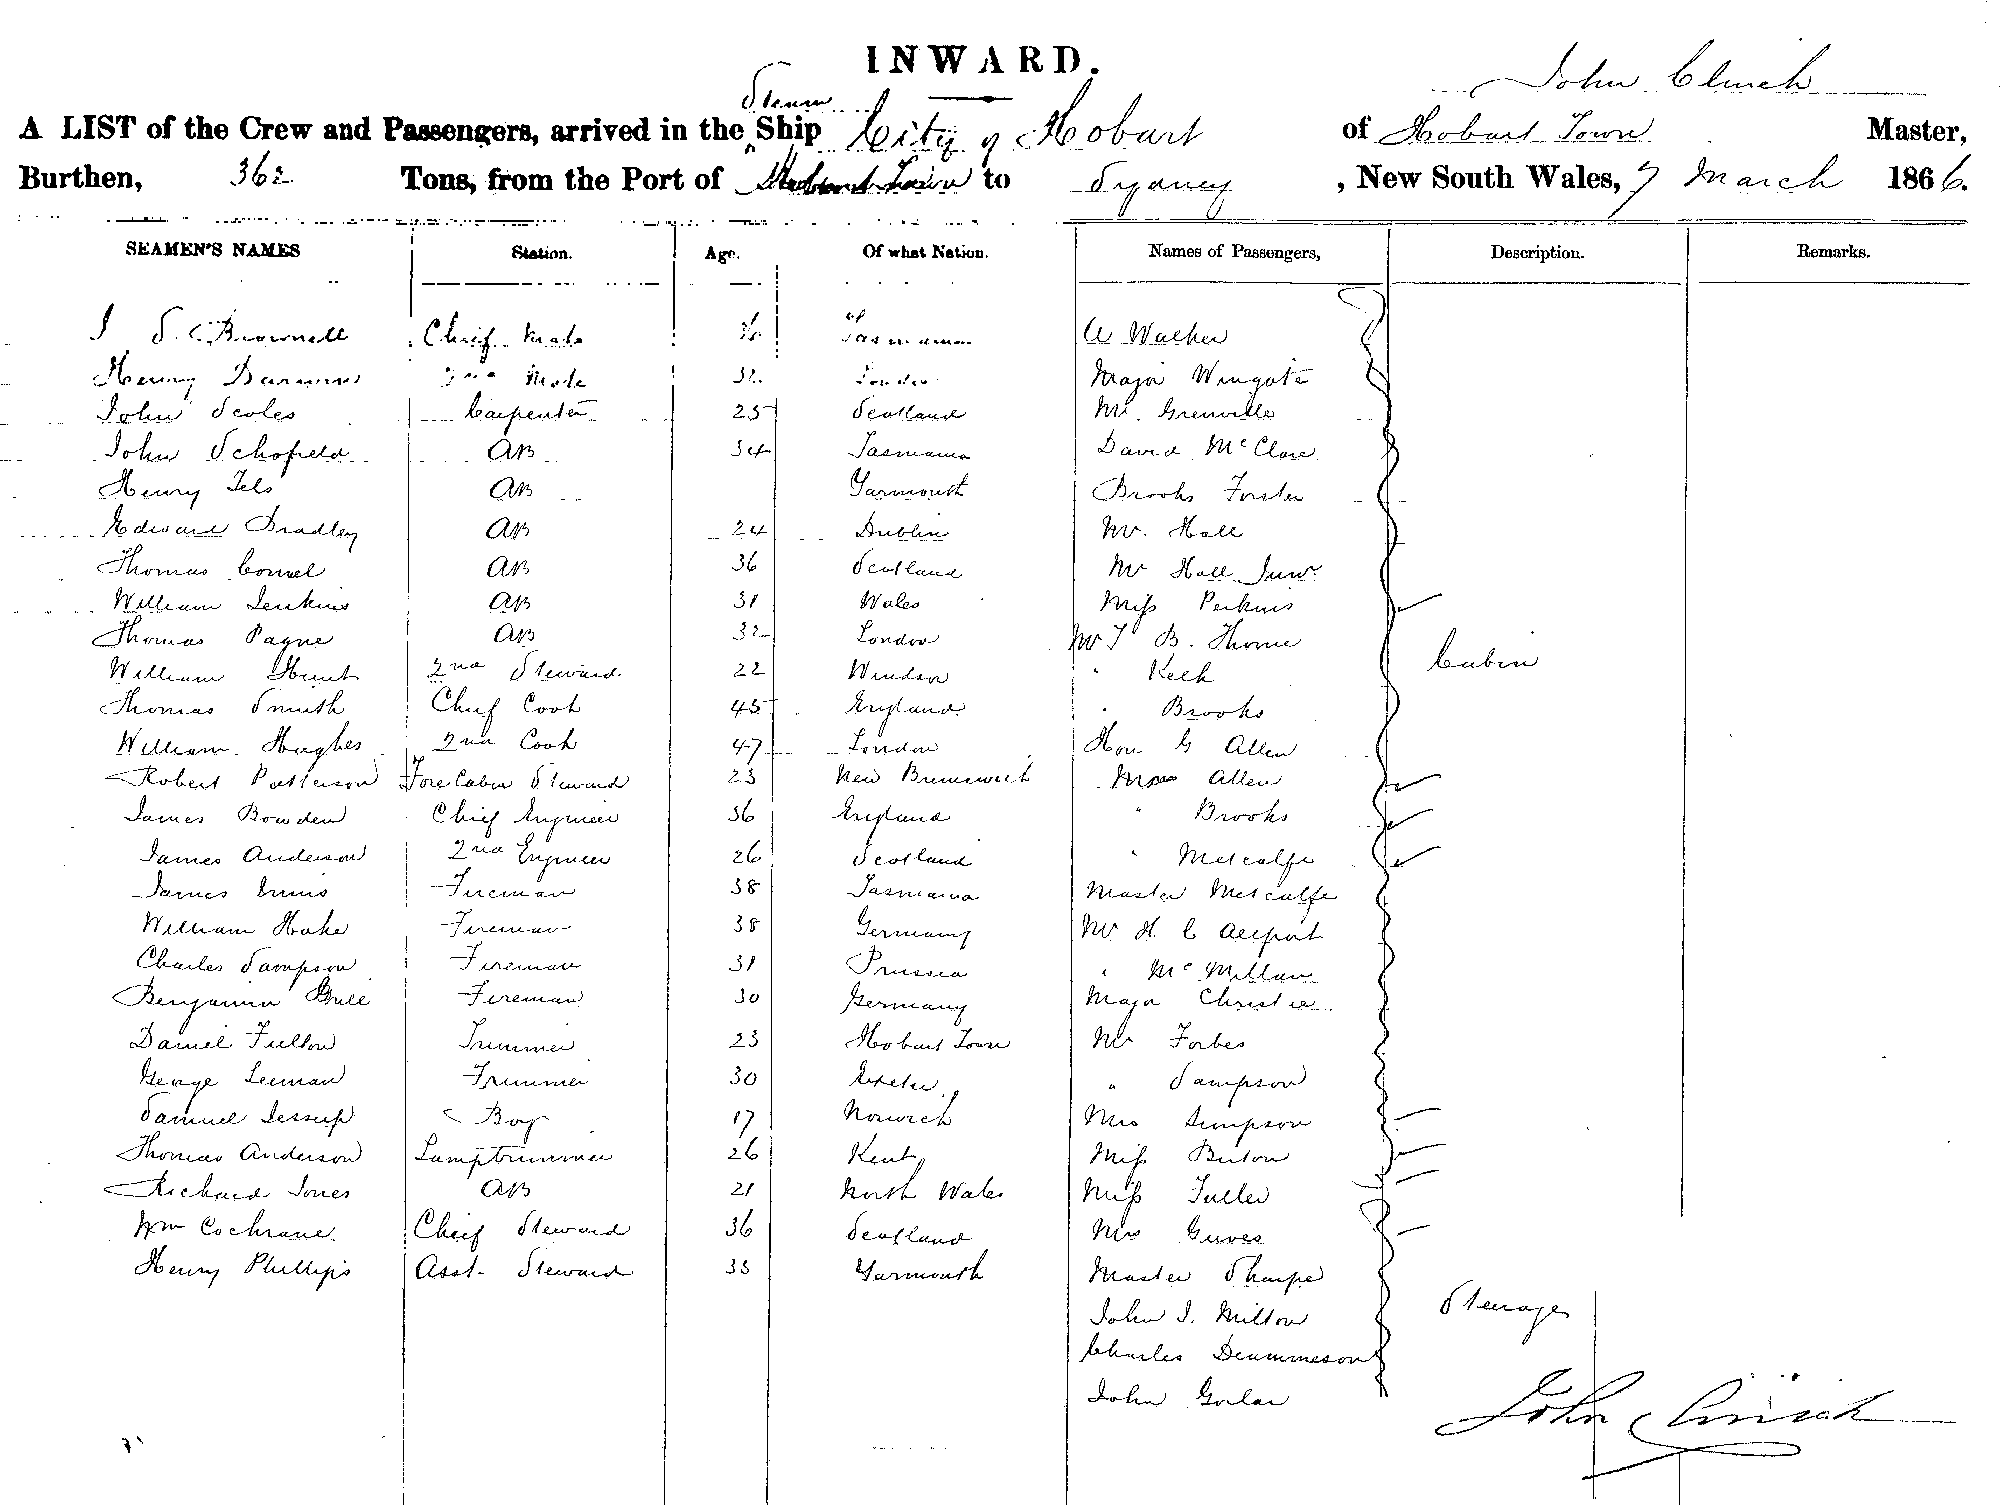 INWARD.
John Clinch
Steam
A LIST of the Crew and Passengers, arrived in the Ship City of Hobart of Hobart Town Master,
Burthen, 362 Tons, from the Port of Hobart Town to Sydney , New South Wales, 7 March 1866.
SEAMEN'S NAMES Station. Age. Of what Nation. Names of Passengers, Description. Remarks.
Brownell Chief Mate Tasmania A Walker
Henry 2nd Mate 32 London Major Wingate
John Scoles Carpenter 25 Scotland Mr. Grenville
John Schofield AB 34 Tasmania David McClare
Henry AB Yarmouth Brooks Forster
Edward Bradley AB 24 Dublin Mr. Hall
Thomas AB 36 Scotland Mr Hall Junr
William Jenkins AB 31 Wales Miss Perkins
Thomas Payne AB 32 London Mr T B. Thorne
William Hunt 2nd Steward 22 Windsor " Cabin
Thomas Smith Chief Cook 45 England " Brooks
William Hughes 2nd Cook 47 London Hon G Allen
Robert Patterson Fore Cabin Steward 23 New Brunswick Mrs Allen
James Bowden Chief Engineer 36 England " Brooks
James Anderson 2nd Engineer 26 Scotland " Metcalfe
James Innis Fireman 38 Tasmania Master Metcalfe
William Hake Fireman 38 Germany Mr H C Allport
Charles Sampson Fireman 31 Prussia " McMillan
Benjamin Fireman 30 Germany Major Christie
Daniel Fulton Trimmer 23 Hobart Town Mr Forbes
George Leeman Trimmer 30 Exeter " Sampson
Samuel Jessup Boy 17 Norwich Mrs Simpson
Thomas Anderson Lamptrimmer 26 Kent Miss
Richard Jones AB 21 North Wales Miss Fuller
Wm Cochrane Chief Steward 36 Scotland Mrs
Henry Phillips Asst. Steward 33 Yarmouth Master Sharpe
John J. Milton Steerage
Charles
John
John Clinch